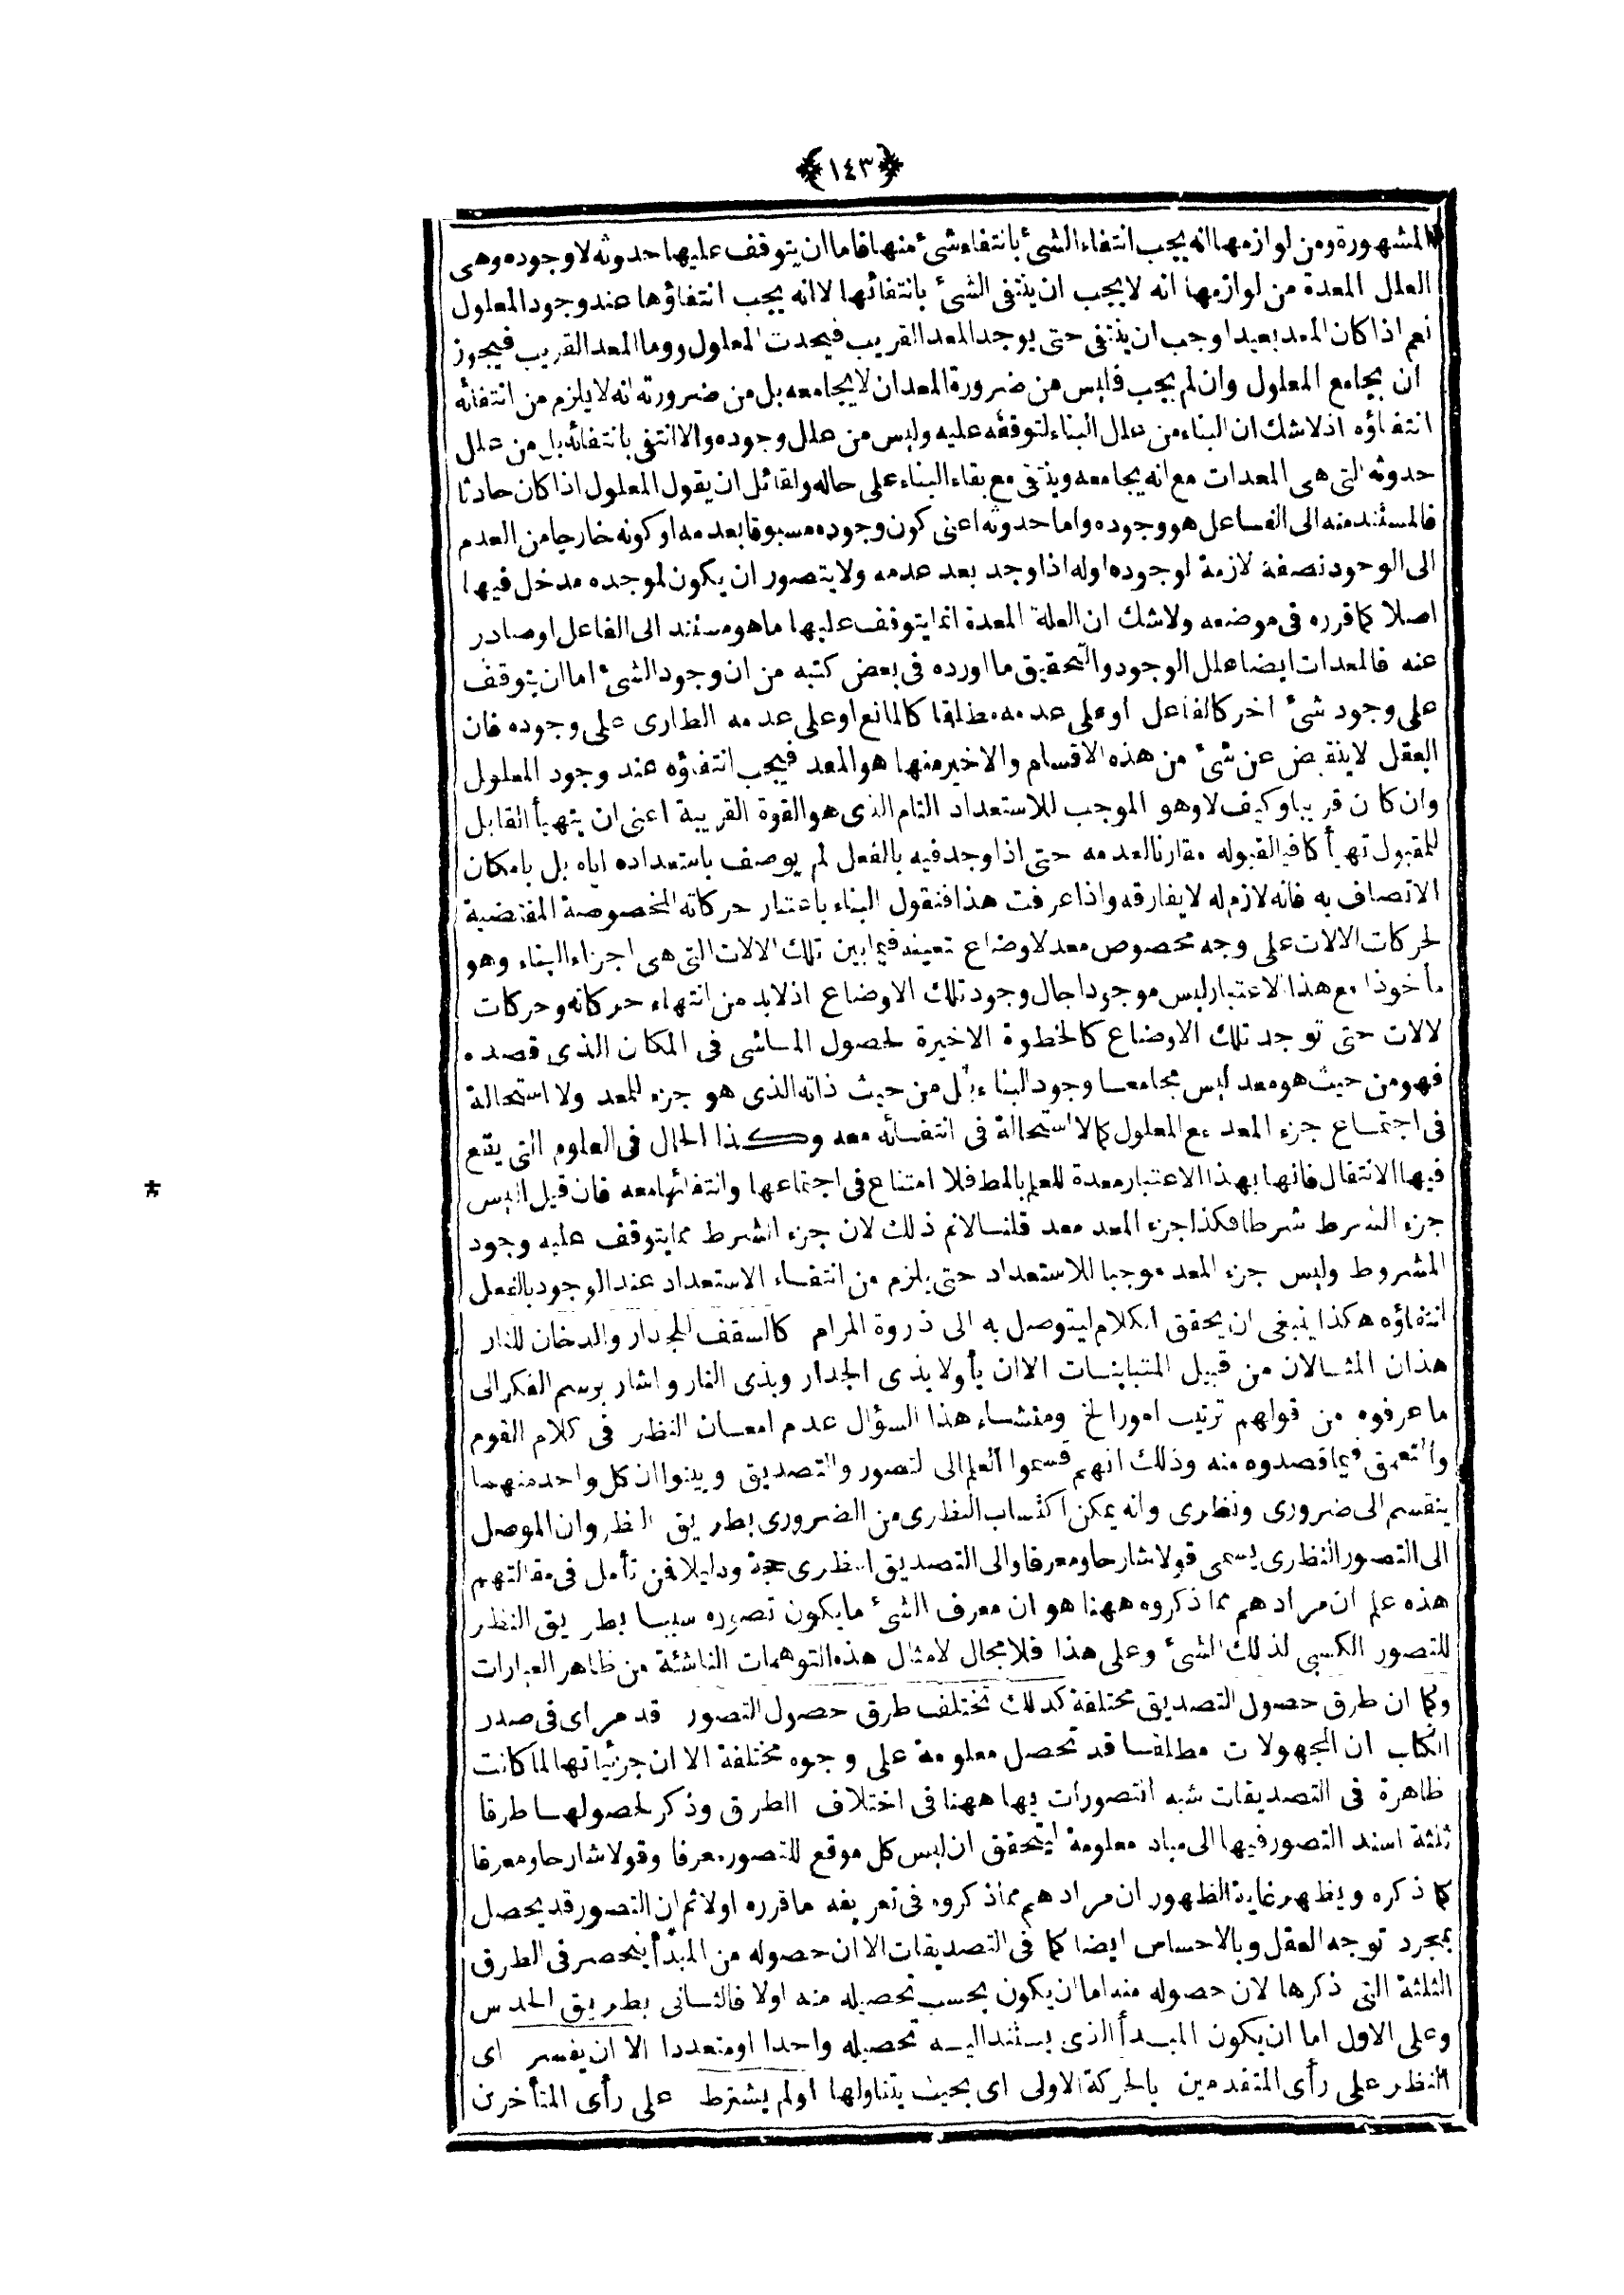 ﴿١٤٣﴾
المشهورة ومن لوازمها انه يجب انتفاء الشئ بانتفاء شئ منها فاما ان يتوقف عليها حدوثه لا وجوده وهى
العلل المعدة من لوازمها انه لا يجب ان ينتفى الشئ بانتفائها لا انه يجب انتفاؤها عند وجود المعلول
نعم اذا كان المعد بعيدا وجب ان ينتفى حتى يوجد المعد القريب فيحدث المعلول وواما المعد القريب فيجوز
ان يجامع المعلول وان لم يجب فليس من ضرورة المعد ان لا يجامعه بل من ضرورته انه لا يلزم من انتفائه
انتفاؤه اذ لا شك ان البناء من علل البناء لتوقفه عليه وليس من علل وجوده والا انتفى بانتفائه بل من علل
حدوثه التى هى المعدات مع انه يجامعه وينتفى مع بقاء البناء على حاله ولقائل ان يقول المعلول اذا كان حادثا
فالمستند منه الى الفاعل هو وجوده واما حدوثه اعنى كون وجوده مسبوقا بعدمه او كونه خارجا من العدم
الى الوجود فصفة لازمة لوجوده اوله اذا وجد بعد عدمه ولا يتصور ان يكون لموجده مدخل فيها
اصلا كما قرره فى موضعه ولا شك ان العلة المعدة انما يتوقف عليها ما هو مستند الى الفاعل او صادر
عنه فالمعدات ايضا علل الوجود والتحقيق ما اورده فى بعض كتبه من ان وجود الشئ اما ان يتوقف
على وجود شئ اخر كالفاعل او على عدمه مطلقا كالمانع او على عدمه الطارى على وجوده فان
العقل لا ينقبض عن شئ من هذه الاقسام والاخير منها هو المعد فيجب انتفاؤه عند وجود المعلول
وان كان قريبا وكيف لا وهو الموجب للاستعداد التام الذى هو القوة القريبة اعنى ان يتهيأ القابل
للمقبول تهيأ كافيا لقبوله مقارنا لعدمه حتى اذا وجد فيه بالفعل لم يوصف باستعداده اياه بل بامكان
الاتصاف به فانه لازم له لا يفارقه واذا عرفت هذا فنقول البناء باعتبار حركاته المخصوصة المقتضية
لحركات الالات على وجه مخصوص معد لاوضاع تعينه فيما بين تلك الالات التى هى اجزاء البناء وهو
مأخوذا مع هذا الاعتبار ليس موجودا حال وجود تلك الاوضاع اذ لا بد من انتهاء حركاته وحركات
لالات حتى توجد تلك الاوضاع كالخطوة الاخيرة لحصول الماشى فى المكان الذى قصده
فهو من حيث هو معد ليس مجامعا وجود البناء بل من حيث ذاته الذى هو جزء للمعد ولا استحالة
فى اجتماع جزء المعد مع المعلول كما لا استحالة فى انتفائه معه وكذا الحال فى العلوم التى يقع
فيها الانتقال فانها بهذا الاعتبار معدة للعلم بالمط فلا امتناع فى اجتماعها وانتفائها معه فان قيل اليس
جزء الشرط شرطا فكذا جزء المعد معد قلنا لانم ذلك لان جزء الشرط مما يتوقف عليه وجود
المشروط وليس جزء المعد موجبا للاستعداد حتى يلزم من انتفاء الاستعداد عند الوجود بالفعل
انتفاؤه هكذا ينبغى ان يحقق الكلام ليتوصل به الى ذروة المرام كالسقف للجدار والدخان للنار
هذان المثالان من قبيل المتباينات الا ان يأولا بذى الجدار وبذى النار واشار برسم الفكر الى
ما عرفوه من قولهم ترتيب امور الخ ومنشاء هذا السؤال عدم امعان النظر فى كلام القوم
والتعمق فيما قصدوه منه وذلك انهم قسموا العلم الى لتصور والتصديق وبينوا ان كل واحد منهما
ينقسم الى ضرورى ونظرى وانه يمكن اكتساب النظرى من الضرورى بطريق النظر وان الموصل
الى التصور النظرى يسمى قولا شارحا ومعرفا والى التصديق النظرى حجة ودليلا فمن تأمل فى مقالتهم
هذه علم ان مرادهم مما ذكروه ههنا هو ان معرف الشئ ما يكون تصوره سببا بطريق النظر
للتصور الكسبى لذلك الشئ وعلى هذا فلا مجال لامثال هذه التوهمات الناشئة من ظاهر العبارات
وكما ان طرق حصول التصديق مختلفة كذلك تختلف طرق حصول التصور قد مر اى فى صدر
الكتاب ان المجهولات مطلقا قد تحصل معلومة على وجوه مختلفة الا ان جزئياتها لما كانت
ظاهرة فى التصديقات شبه التصورات بها ههنا فى اختلاف الطرق وذكر لحصولها طرقا
ثلثة اسند التصور فيها الى مباد معلومة ليتحقق ان ليس كل موقع للتصور معرفا وقولا شارحا ومعرفا
كما ذكره ويظهر غاية الظهور ان مرادهم مما ذكروه فى تعريفه ما قرره اولا ثم ان التصور قد يحصل
بمجرد توجه العقل وبالاحساس ايضا كما فى التصديقات الا ان حصوله من المبدأ ينحصر فى الطرق
الثلثة التى ذكرها لان حصوله منه اما ان يكون بحسب تحصيله منه اولا فالثانى بطريق الحدس
وعلى الاول اما ان يكون المبدأ الذى يستند اليه تحصيله واحدا او متعددا الا ان يفسر اى
النظر على رأى المتقدمين بالحركة الاولى اى بحيث يتناولها اولم يشترط على رأى المتأخرين
*